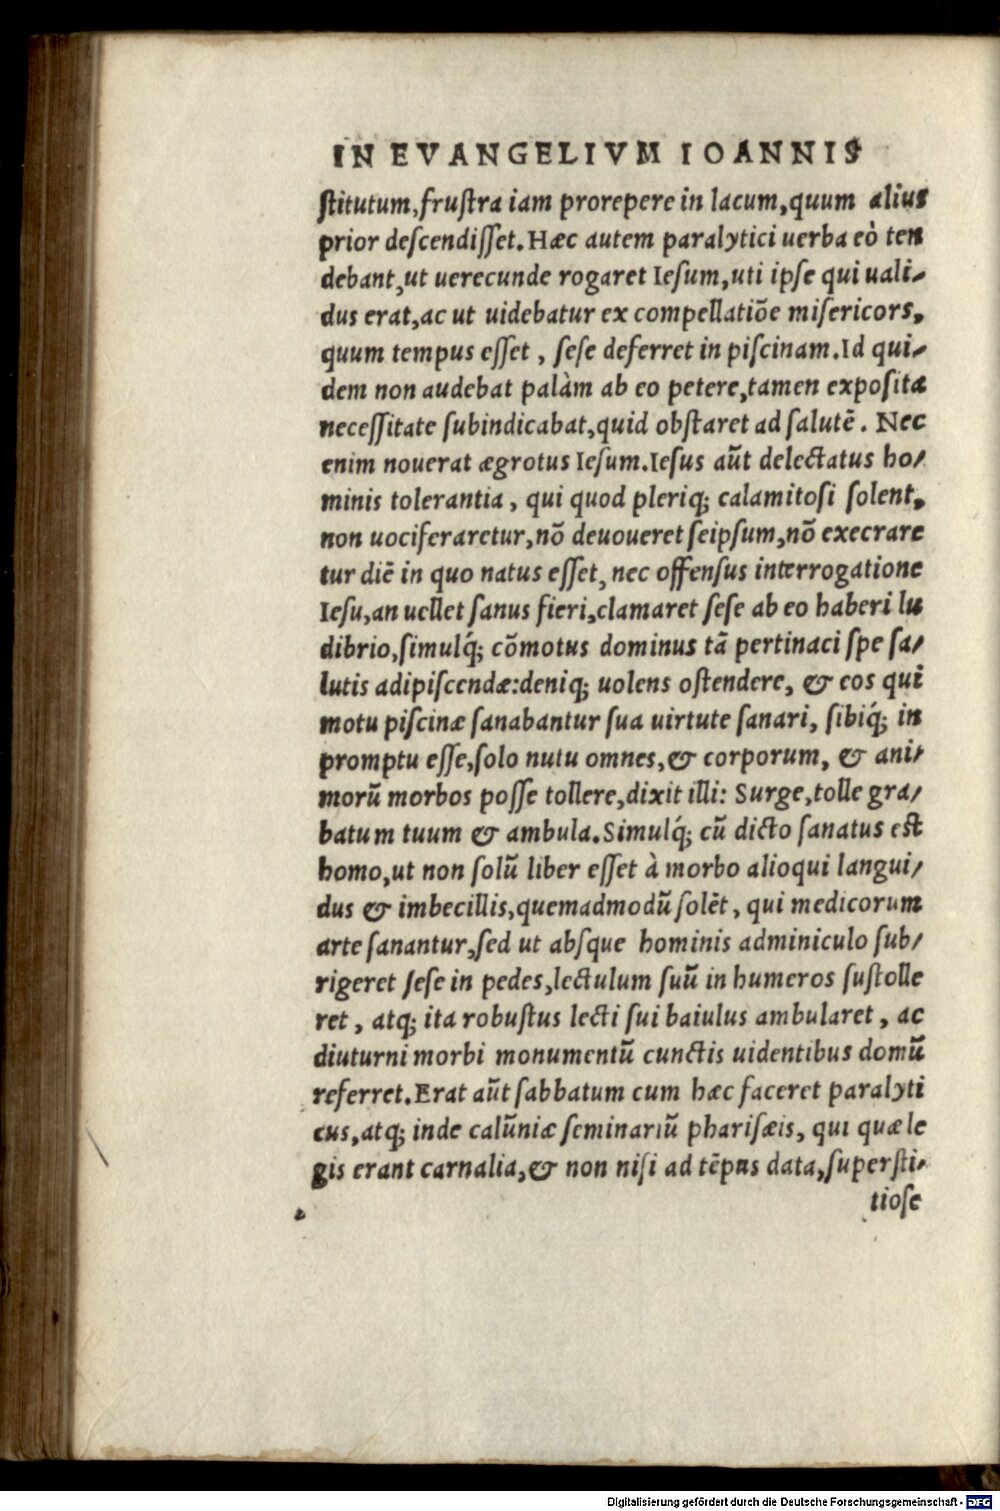 IN EVANGELIVM IOANNIS
ſtitutum, fruſtra iam prorepere in lacum, quum alius
prior deſcendiſſet. Hæc autem paralytici uerba eò ten
debant, ut uerecunde rogaret Ieſum, uti ipſe qui uali-
dus erat, ac ut uidebatur ex compellatiõe miſericors,
quum tempus eſſet, ſeſe deferret in piſcinam. Id qui-
dem non audebat palàm ab eo petere, tamen expoſita
neceſſitate ſubindicabat, quid obſtaret ad ſalutẽ. Nec
enim nouerat ægrotus Ieſum. Ieſus aũt delectatus ho-
minis tolerantia, qui quod pleriq; calamitoſi ſolent,
non uociferaretur, nõ deuoueret ſeipſum, nõ execrare
tur diẽ in quo natus eſſet, nec offenſus interrogatione
Ieſu, an uellet ſanus fieri, clamaret ſeſe ab eo haberi lu
dibrio, ſimulq́; cõmotus dominus tã pertinaci ſpe ſa-
lutis adipiſcendæ: deniq; uolens oſtendere, & eos qui
motu piſcinæ ſanabantur ſua uirtute ſanari, ſibiq́; in
promptu eſſe, ſolo nutu omnes, & corporum, & ani-
morũ morbos poſſe tollere, dixit illi: Surge, tolle gra-
batum tuum & ambula. Simulq́; cũ dicto ſanatus eſt
homo, ut non ſolũ liber eſſet à morbo alioqui langui-
dus & imbecillis, quemadmodũ ſolẽt, qui medicorum
arte ſanantur, ſed ut abſque hominis adminiculo ſub-
rigeret ſeſe in pedes, lectulum ſuũ in humeros ſuſtolle
ret, atq; ita robuſtus lecti ſui baiulus ambularet, ac
diuturni morbi monumentũ cunctis uidentibus domũ
referret. Erat aũt ſabbatum cum hæc faceret paralyti
cus, atq; inde calũniæ ſeminariũ phariſæis, qui quæ le
gis erant carnalia, & non niſi ad tẽpus data, ſuperſti-
tioſe
Digitalisierung gefördert durch die Deutsche Forschungsgemeinschaft - DFG